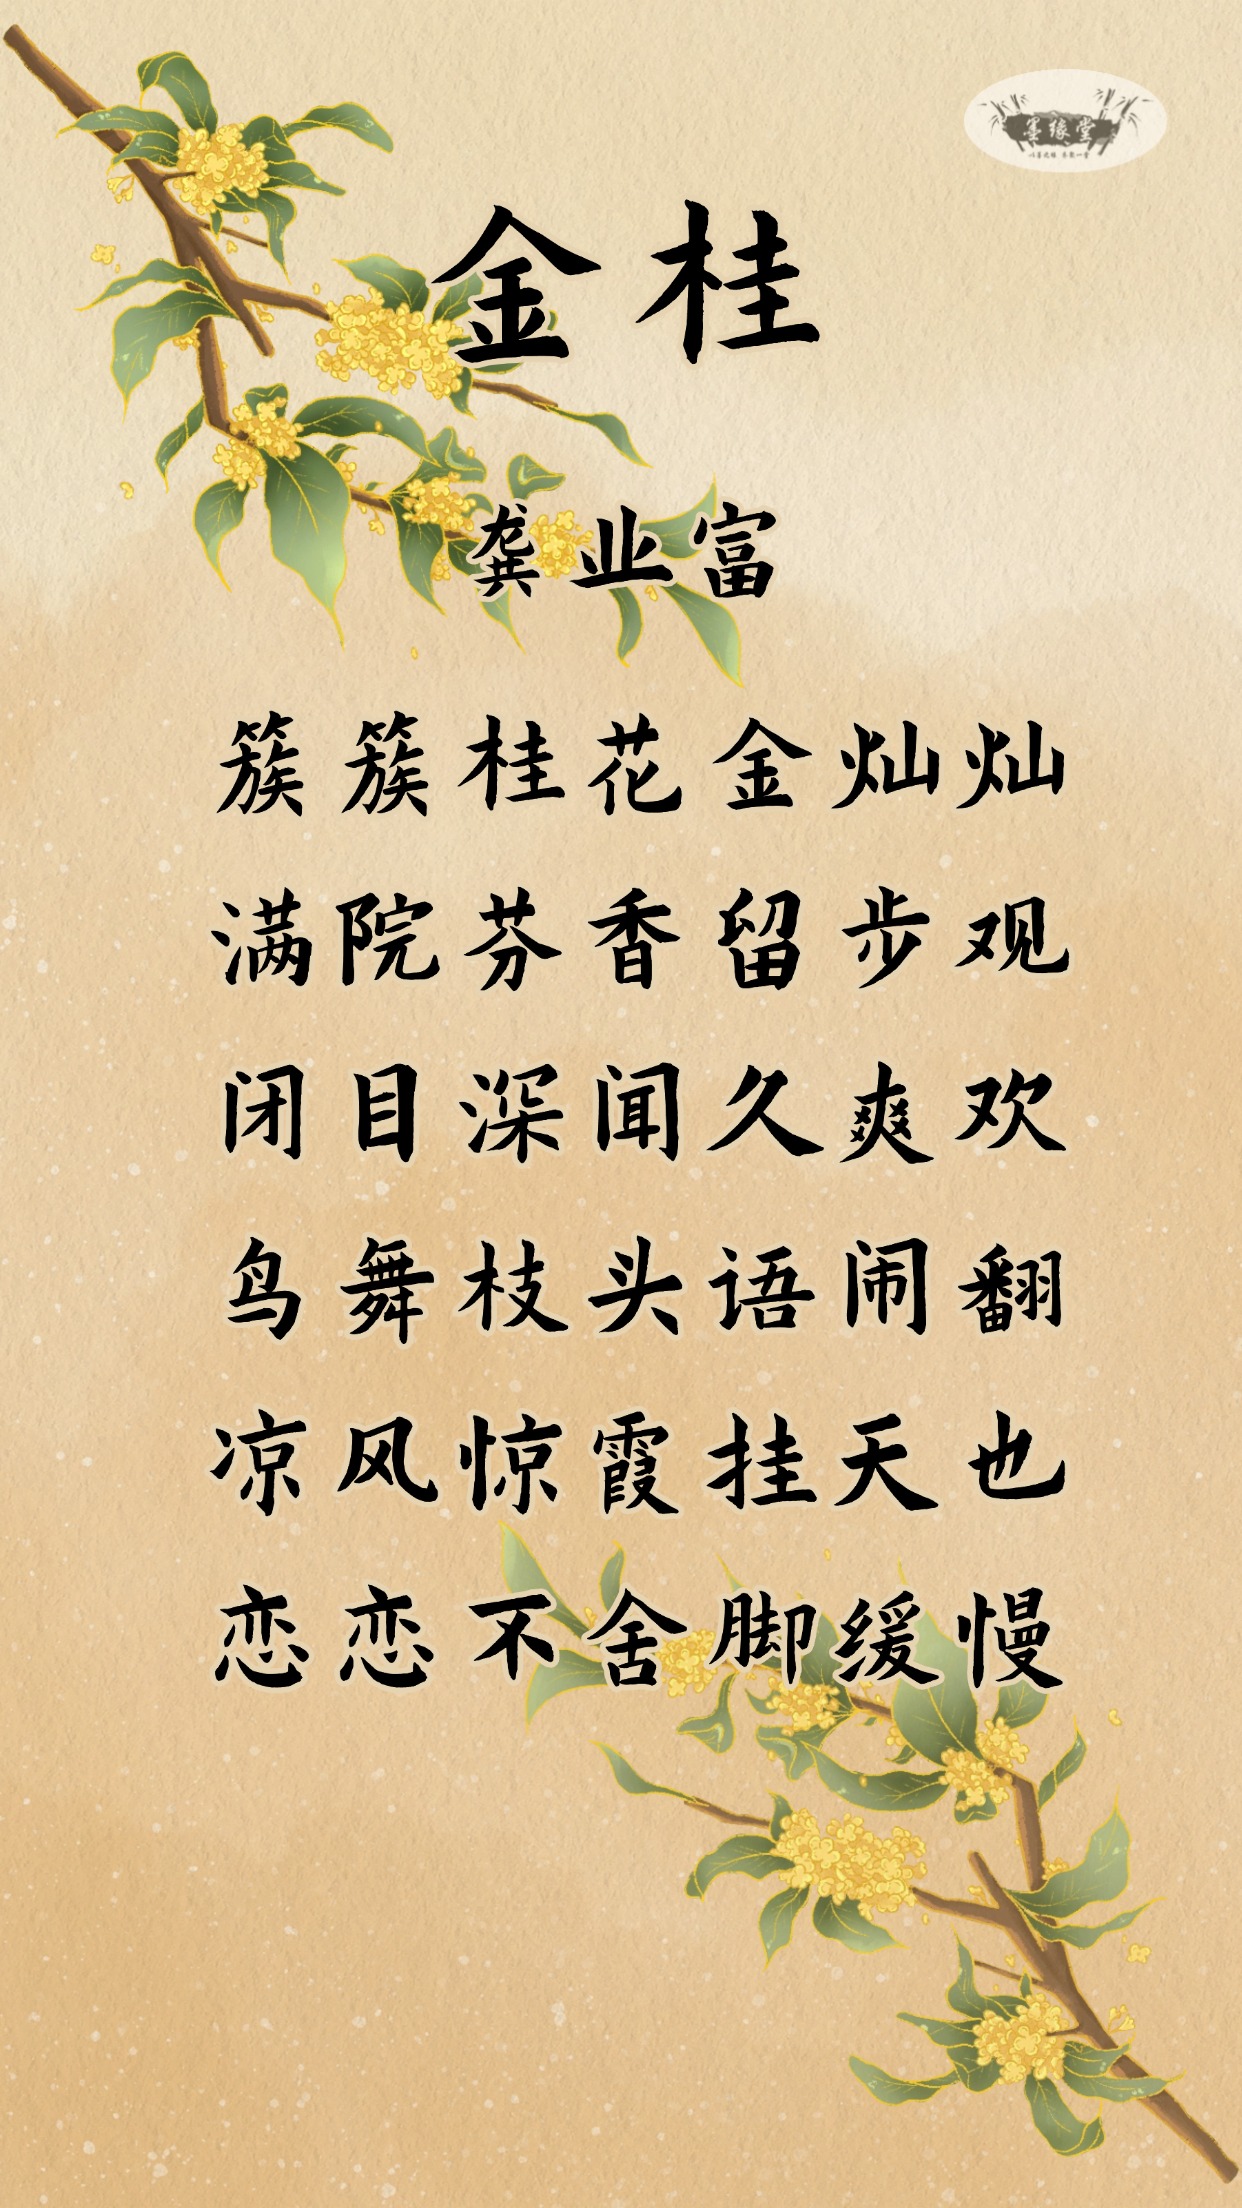 墨缘堂
金桂
龚业富
簇簇桂花金灿灿
满院芬香留步观
闭目深闻久爽欢
鸟舞枝头语闹翻
凉风惊霞挂天也
恋恋不舍脚缓慢